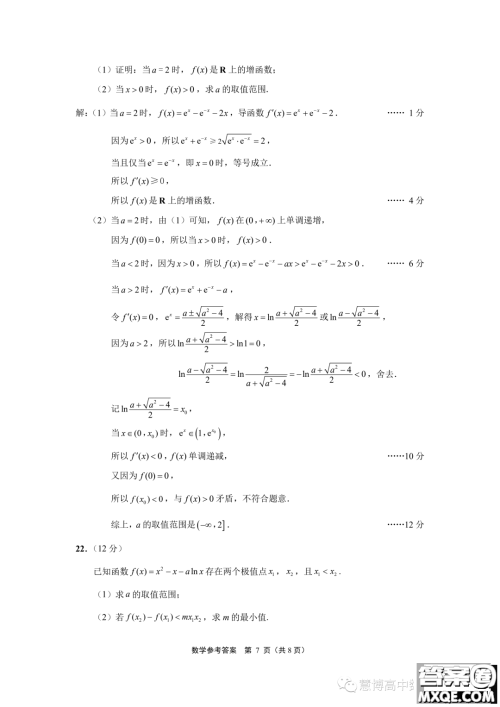 （1）证明：当a=2时，f(x)是R上的增函数；
（2）当x>0时，f(x)>0，求a的取值范围.
解：（1）当a=2时，f(x)=eˣ−e⁻ˣ−2x，导函数f′(x)=eˣ+e⁻ˣ−2． …… 1分
因为eˣ>0，所以eˣ+e⁻ˣ≥2√(eˣ·e⁻ˣ)=2，
当且仅当eˣ=e⁻ˣ，即x=0时，等号成立．
所以f′(x)≥0，
所以f(x)是R上的增函数． …… 4分
（2）当a=2时，由（1）可知，f(x)在(0,+∞)上单调递增，
因为f(0)=0，所以当x>0时，f(x)>0．
当a<2时，因为x>0，所以f(x)=eˣ−e⁻ˣ−ax>eˣ−e⁻ˣ−2x>0． …… 6分
当a>2时，f′(x)=eˣ+e⁻ˣ−a，
令f′(x)=0，eˣ=(a±√(a²−4))/2，解得x=ln (a+√(a²−4))/2 或ln (a−√(a²−4))/2，
因为a>2，所以ln (a+√(a²−4))/2>ln1=0，
ln (a−√(a²−4))/2=ln 2/(a+√(a²−4))=−ln (a+√(a²−4))/2<0，舍去．
记ln (a+√(a²−4))/2=x₀，
当x∈(0,x₀)时，eˣ∈(1,e^(x₀))，
所以f′(x)<0，f(x)单调递减， ……10分
又因为f(0)=0，
所以f(x₀)<0，与f(x)>0矛盾，不符合题意．
综上，a的取值范围是(−∞,2]． ……12分
22.（12分）
已知函数f(x)=x²−x−alnx存在两个极值点x₁，x₂，且x₁<x₂．
（1）求a的取值范围；
（2）若f(x₂)−f(x₁)<mx₁x₂，求m的最小值.
数学参考答案 第 7 页（共 8 页）
慧博高中
答案圈
MXQE.COM